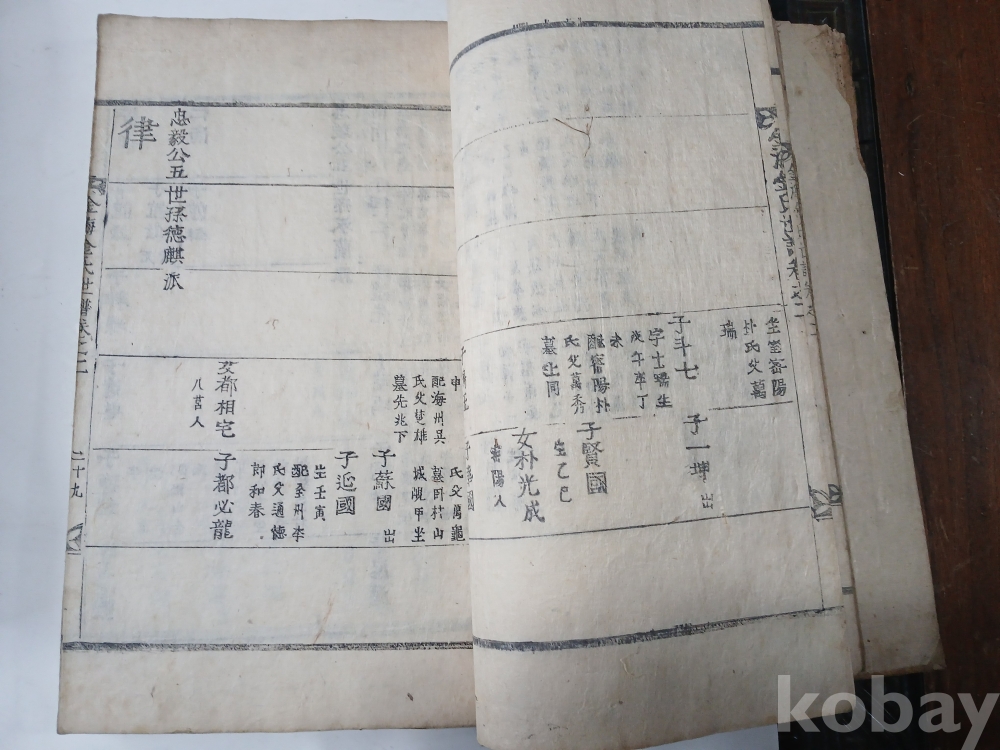 坐 密陽
朴氏父萬
瑞
子斗七
字士 生
戊午卒丁
未
配密陽朴
氏父萬秀
墓 同
子一 出
子賢國
生乙巳
女朴光成
陽人
氏父萬
墓 村山
城 甲坐
申
配海州吳
氏父楚雄
墓先兆下
子蘇國 出
子 國
生壬寅
配全州李
氏父通德
郎和春
女都相宅
八莒人
子都必龍
忠毅公五世孫德麒派
律
金海金氏世譜卷之二
二十九
kobay